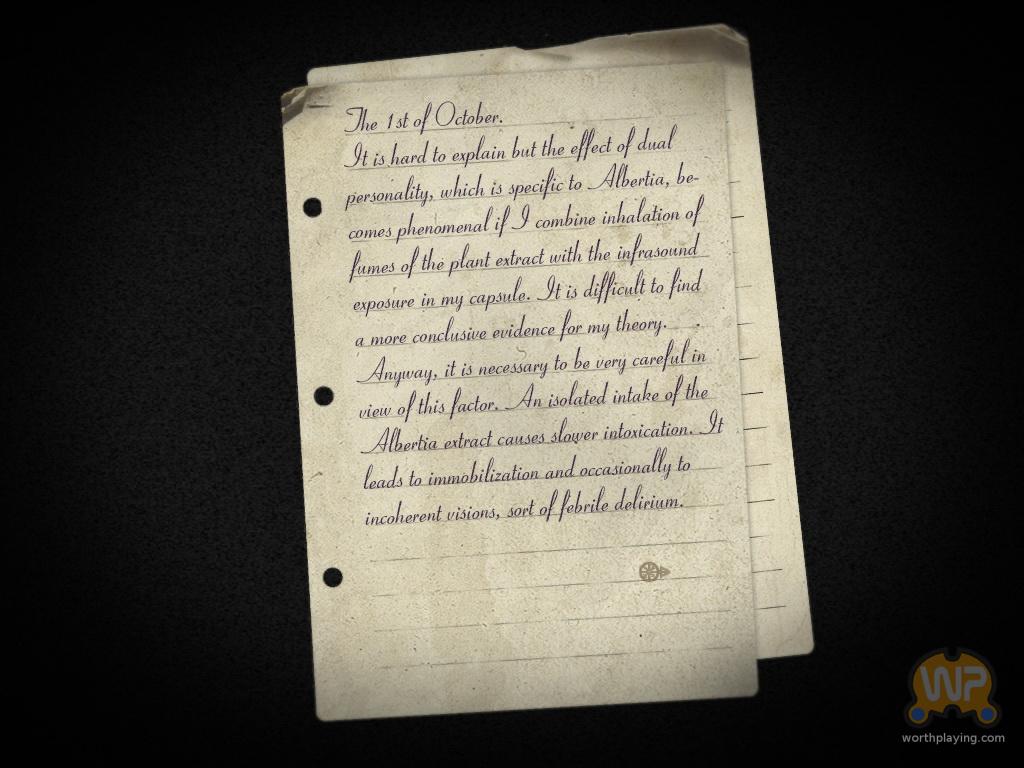 The 1st of October.
It is hard to explain but the effect of dual
personality, which is specific to Albertia, be-
comes phenomenal if I combine inhalation of
fumes of the plant extract with the infrasound
exposure in my capsule. It is difficult to find
a more conclusive evidence for my theory.
Anyway, it is necessary to be very careful in
view of this factor. An isolated intake of the
Albertia extract causes slower intoxication. It
leads to immobilization and occasionally to
incoherent visions, sort of febrile delirium.
WP
worthplaying.com